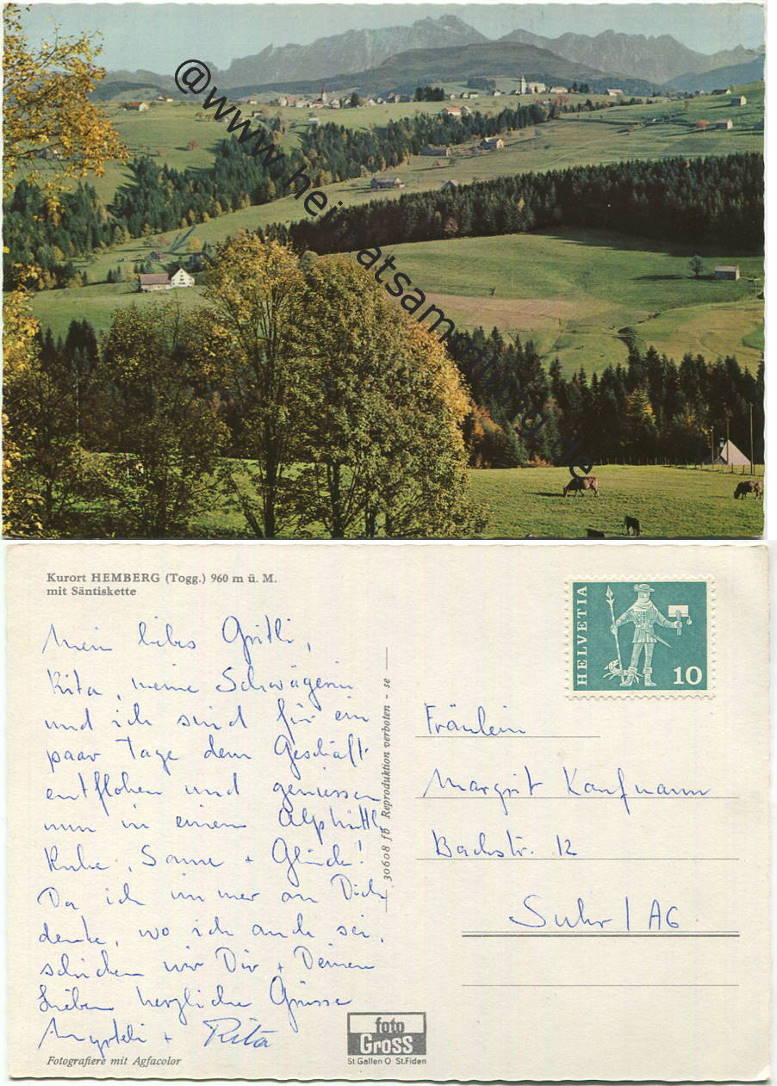 @www.heimatsammlung.de
Kurort HEMBERG (Togg.) 960 m ü. M.
mit Säntiskette
HELVETIA
10
Mein liebes Gritli,
Rita, meine Schwägerin
und ich sind für ein
paar Tage dem Geschäft
entflohen und geniessen
nun in einem Alphüttli
Ruhe, Sonne + Glück!
Da ich immer an Dich
denke, wo ich auch sei,
schicken wir Dir + Deinen
Lieben herzliche Grüsse
+ Rita
30608 fb Reproduktion verboten - se
Fräulein
Margrit Kaufmann
Bachstr. 12
Suhr / AG
Fotografiere mit Agfacolor
foto
GROSS
St. Gallen O St. Fiden